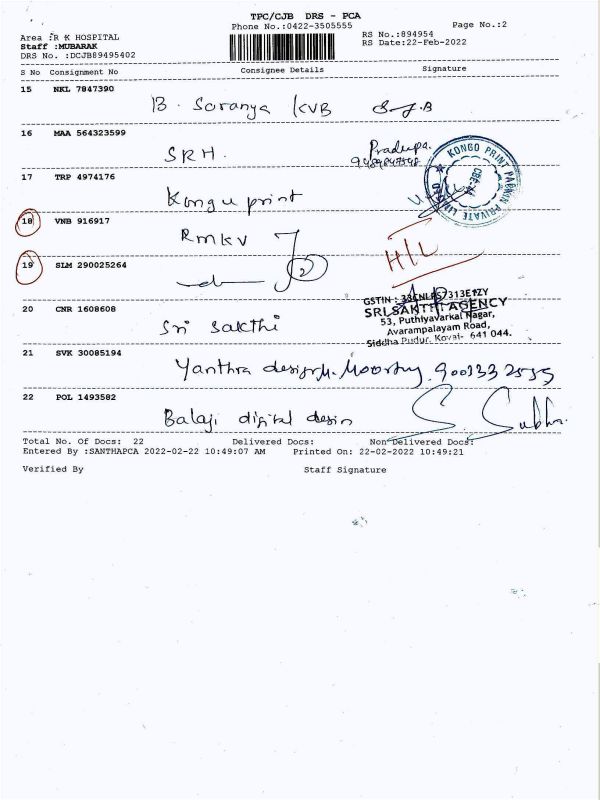 TPC/CJB DRS - PCA
Phone No.:0422-3505555
Page No.:2
Area :R K HOSPITAL
RS No.:894954
Staff :MUBARAK
RS Date:22-Feb-2022
DRS No. :DCJB89495402
S No Consignment No Consignee Details Signature
15 NKL 7847390
B. Saranya KVB
16 MAA 564323599
SRH. Pradeepa.
KONGO PRINT PACKIN PRIVATE LIMITED
CBE-44
17 TRP 4974176
Kongu print
18 VNB 916917
RMKV
H/L
19 SLM 290025264
2
20 CNR 1608608
Sri Sakthi
GSTIN :
SRI SAKTHI AGENCY
53, Puthiyavarkal Nagar,
Avarampalayam Road,
Siddha Pudur, Kovai- 641 044.
21 SVK 30085194
Yanthra design M. Moorthy.
22 POL 1493582
Balaji digital desin S. Subha.
Total No. Of Docs: 22 Delivered Docs: Non Delivered Docs:
Entered By :SANTHAPCA 2022-02-22 10:49:07 AM Printed On: 22-02-2022 10:49:21
Verified By Staff Signature